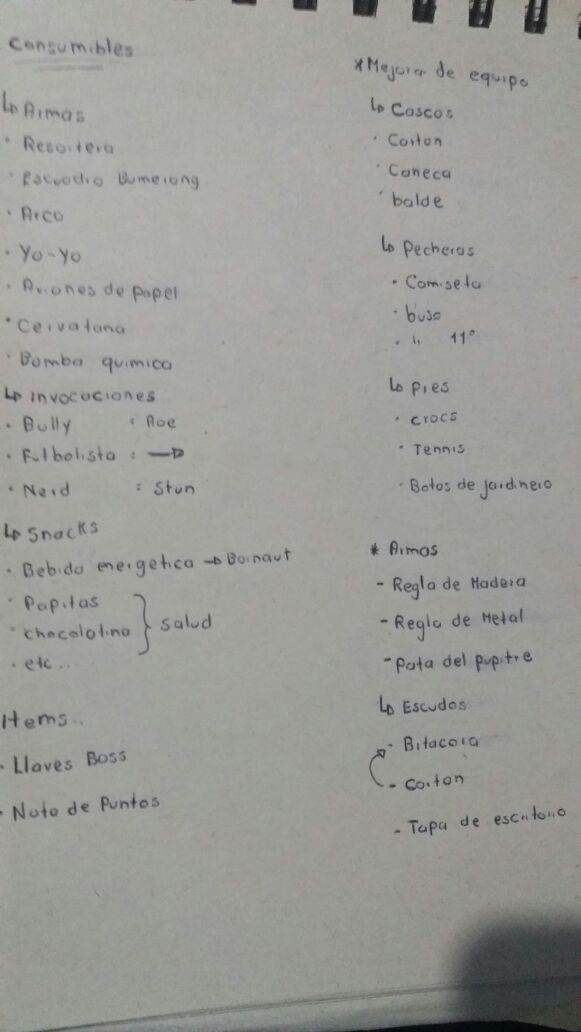 Consumibles
↳ Armas
· Resortera
· Escuadra Bumerang
· Arco
· Yo-Yo
· Aviones de papel
· Cervatana
· Bomba quimica
↳ invocaciones
· Bully : Aoe
· Futbolista : →
· Nerd : Stun
↳ Snacks
· Bebida energetica →
· Papitas
· chocolatina } salud
· etc...
Items..
· Llaves Boss
· Nota de Puntos
*Mejorar de equipo
↳ Cascos
· Carton
· Caneca
· balde
↳ Pecheras
· Camiseta
· buso
· " 11°
↳ Pies
· crocs
· Tennis
· Botas de jardinero
* Armas
- Regla de Madera
- Regla de Metal
- Pata del pupitre
↳ Escudos
- Bitacora
- Carton
- Tapa de escritorio